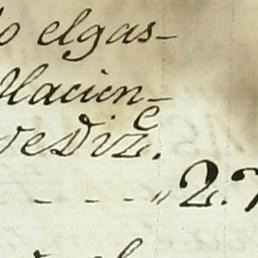 o el gas-
Hacien-
de Dizᵉ.
- - - - " 2.7